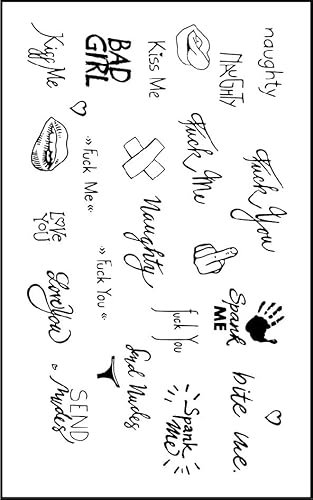 naughty
NAUGHTY
Kiss Me
BAD
GIRL
Kiss Me
Fuck You
Fuck Me
Naughty
»Fuck Me«
LOVE
YOU
Spank
ME
fuck You
»Fuck You«
Love You
bite me.
Spank
Me
Send Nudes
SEND
Nudes